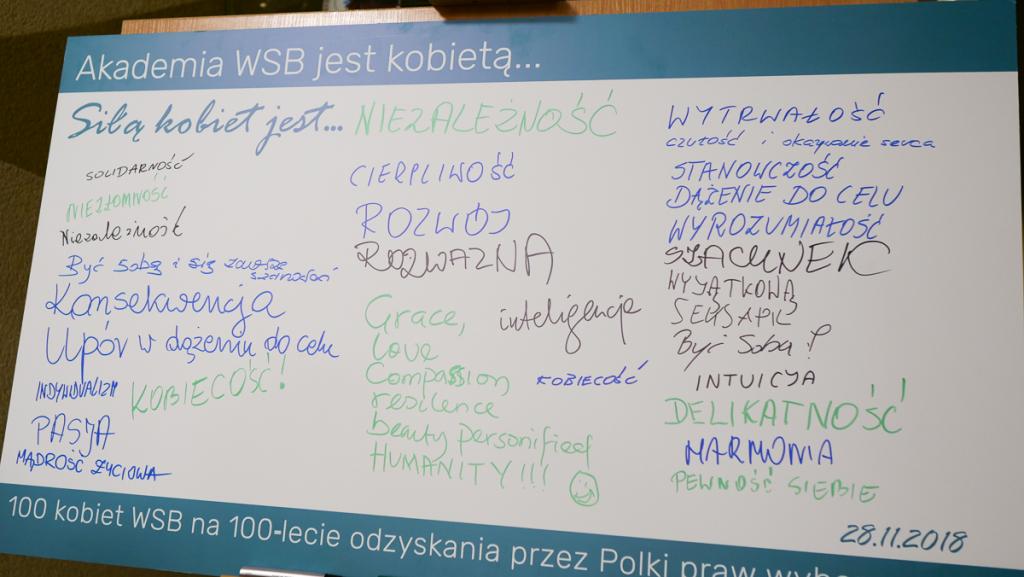 Akademia WSB jest kobietą...
Siłą kobiet jest...
SOLIDARNOŚĆ
NIEZŁOMNOŚĆ
Niezależność
Być sobą i się zawsze
Konsekwencja
Upór w dążeniu do celu
INDYWIDUALIZM
KOBIECOŚĆ!
PASJA
MĄDROŚĆ ŻYCIOWA
NIEZALEŻNOŚĆ
CIERPLIWOŚĆ
ROZWÓJ
ROZWAŻNA
Grace,
inteligencja
love
Compassion,
KOBIECOŚĆ
resilence
beauty personified
HUMANITY!!!
WYTRWAŁOŚĆ
czułość i okazywanie serca
STANOWCZOŚĆ
DĄŻENIE DO CELU
WYROZUMIAŁOŚĆ
SZACUNEK
WYJĄTKOWA
SEKSAPIL
Być Sobą!
INTUICJA
DELIKATNOŚĆ
HARMONIA
PEWNOŚĆ SIEBIE
28.11.2018
100 kobiet WSB na 100-lecie odzyskania przez Polki praw wybo